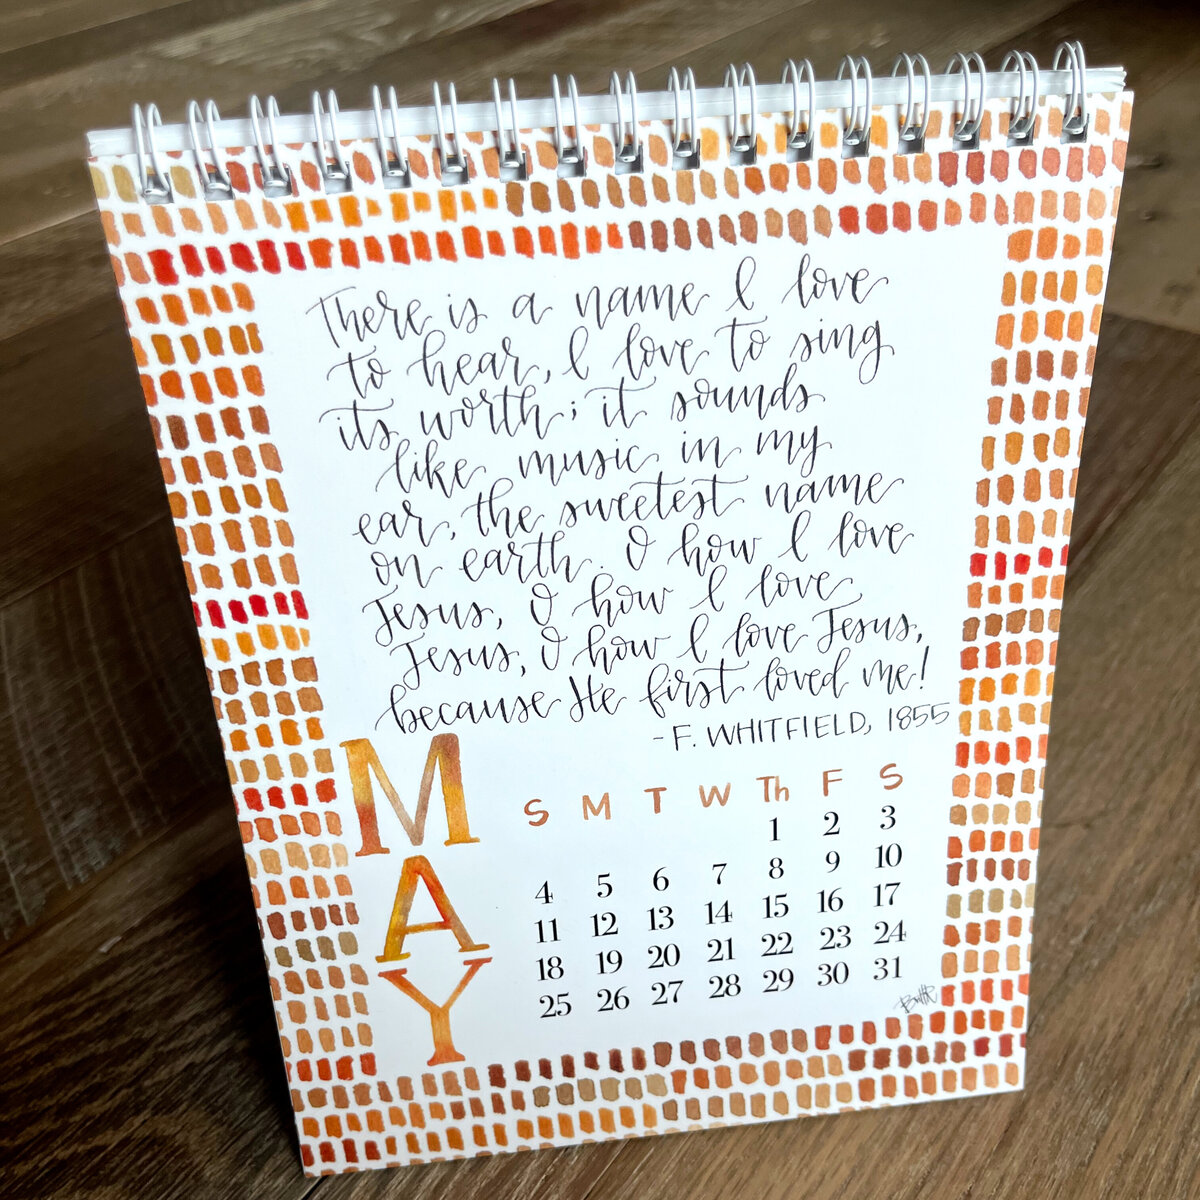 There is a name I love
to hear, I love to sing
its worth; it sounds
like music in my
ear, the sweetest name
on earth. O how I love
Jesus, O how I love
Jesus, O how I love Jesus,
because He first loved me!
- F. WHITFIELD, 1855
MAY
S M T W Th F S
1 2 3
4 5 6 7 8 9 10
11 12 13 14 15 16 17
18 19 20 21 22 23 24
25 26 27 28 29 30 31